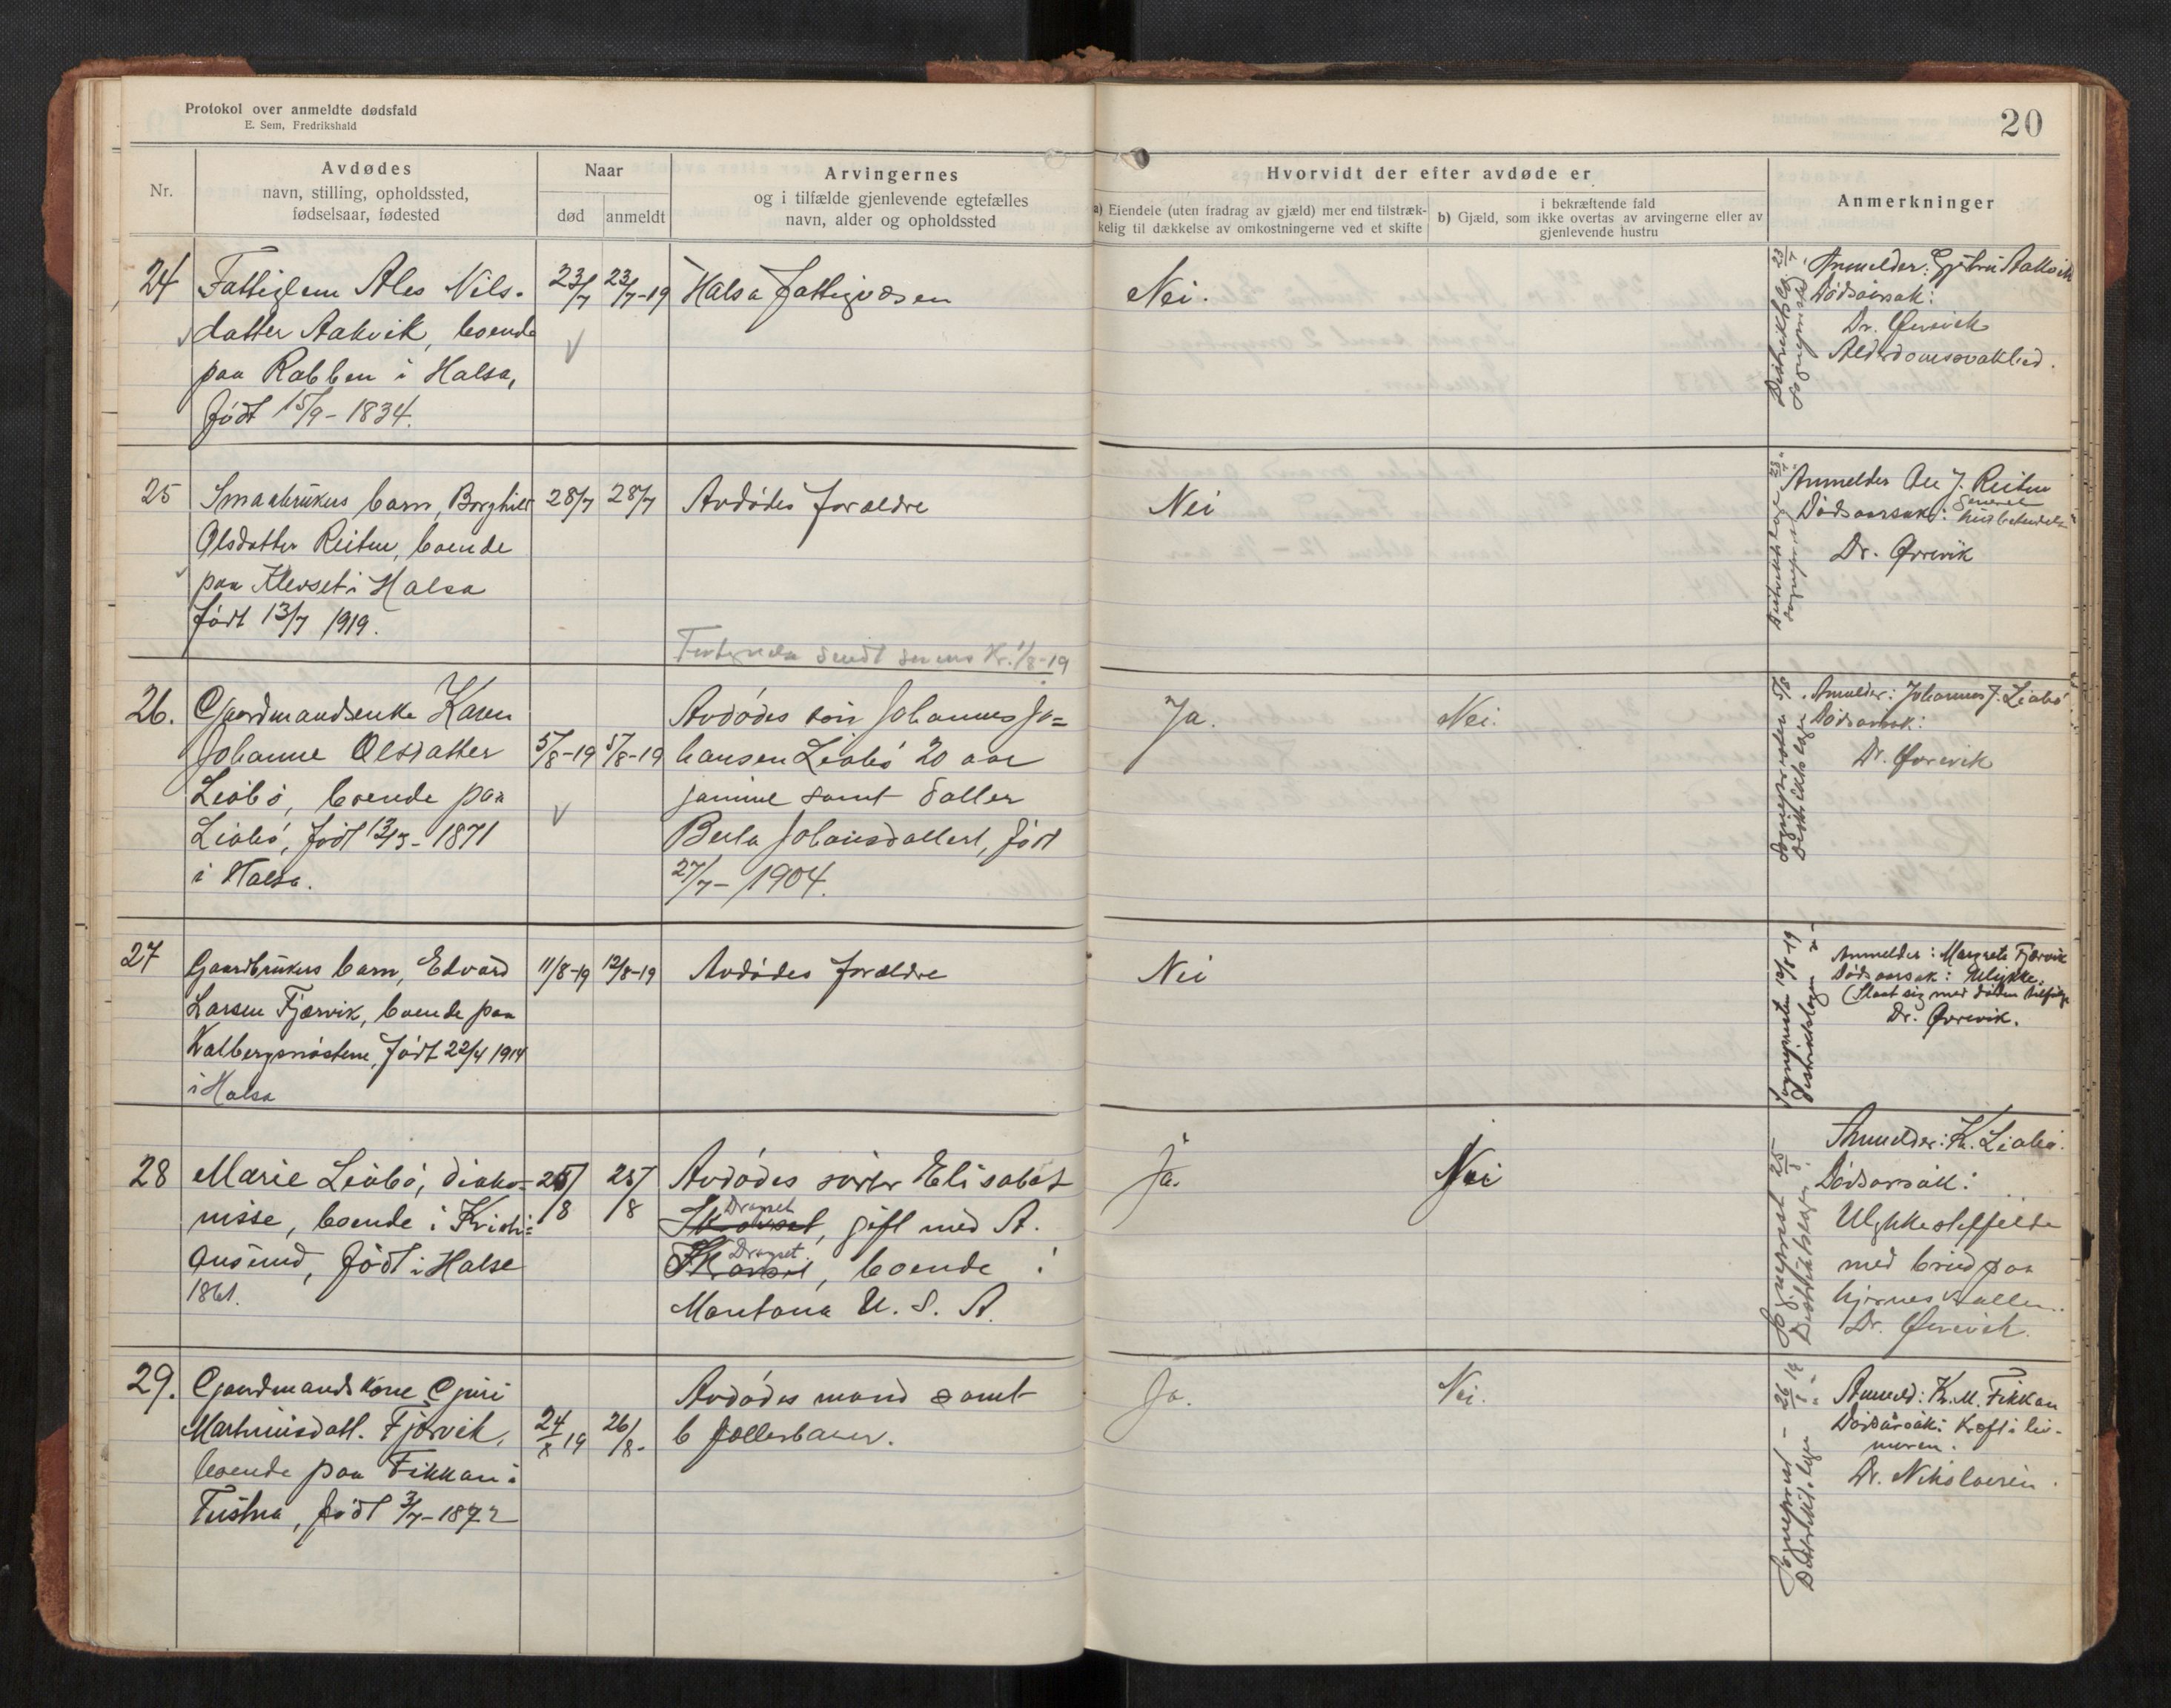 Protokol over anmeldte dødsfald
E. Sem, Fredrikshald
20
Nr.
Avdødes
navn, stilling, opholdssted,
fødselsaar, fødested
Naar
død
anmeldt
Arvingernes
og i tilfælde gjenlevende egtefælles
navn, alder og opholdssted
Hvorvidt der efter avdøde er
a) Eiendele (uten fradrag av gjæld) mer end tilstræk-
kelig til dækkelse av omkostningerne ved et skifte
i bekræftende fald
b) Gjæld, som ikke overtas av arvingerne eller av
gjenlevende hustru
Anmerkninger
24
Fattiglem Ales Nils-
datter Aakvik, boende
paa Rabben i Halsa,
født 15/9-1834.
23/7
23/7-19
Halsa Fattigvæsen
Nei.
Anmelder: Aakvik
Dødsårsak:
Dr. Ørevik
Alderdomssvakhed.
25
Smaabrukers barn, Borghild
Olsdatter Reiten, boende
paa Klevset i Halsa
født 13/7 1919.
28/7
28/7
Avdødes forældre
Nei
Anmelder Ole J. Reiten
Dødsaarsak:
Dr. Ørevik
sendt Kr. 1/8-19
26.
Gaardmandsenke Karen
Johanne Olsdatter
Liabø, boende paa
Liabø, født 12/3-1871
i Halsa.
5/8-19
5/8-19
Avdødes søn Johannes Jo=
hansen Liabø 20 aar
samme samt datter
Berta Johansdatter, født
27/7-1904.
Ja.
Nei.
Sognepresten 5/8
Distriktslægen
Anmelder: Johannes J. Liabø
Dødsårsak:
Dr. Ørevik
27
Gaardbrukers barn, Edvard
Larsen Fjærvik, boende paa
Kalbergsnøstene, født 22/4 1914
i Halsa
11/8-19
12/8-19
Avdødes forældre
Nei
Sognepresten 12/8 19
Distriktslægen
Anmelder: Margrete Fjærvik
Dødsaarsak: Ulykke.
(Slaat sig med døden tilfølge
Dr. Ørevik.
28
Marie Liabø, diako=
nisse, boende i Kristi=
ansund, født i Halse
1861.
25/8
25/8
Avdødes søster Elisabet
Dragset
gift med A.
Dragset
boende i
Montana U. S. A.
Ja.
Nei
Sogneprest 25/8
Distriktslæge
Anmelder: K. Liabø.
Dødsårsak:
Ulykkestilfelde
med brud paa
hjerneskallen.
Dr. Ørevik.
29.
Gaardmandskone Guri
Martinusdatt. Fjørvik,
boende paa Fikkan i
Tustna, født 3/7-1872
24/8 19
26/8-
Avdødes mand samt
6 fællesbarn.
Ja.
Nei.
Sogneprest - 26/8 19
Distriktslæge
Anmeld: K. M. Fikkan
Dødsårsak: Kræft i liv-
moren.
Dr. Nikolaisen.